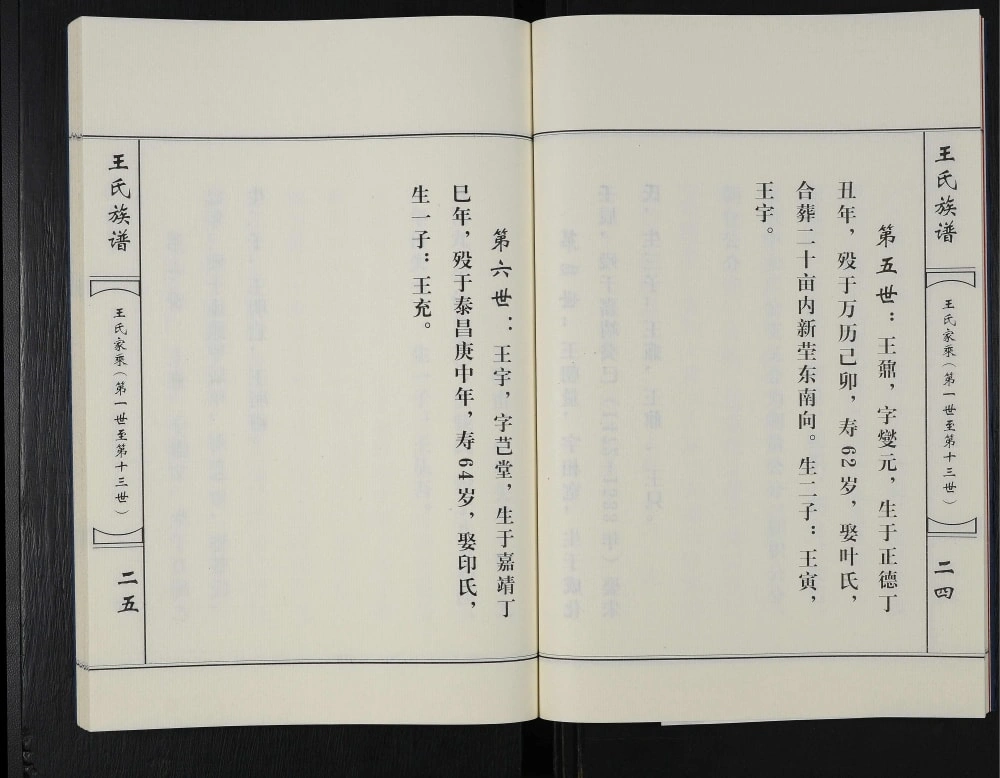 王氏族谱
王氏家乘（第一世至第十三世）
二四
第五世：王鼐，字燮元，生于正德丁
丑年，殁于万历己卯，寿62岁，娶叶氏，
合葬二十亩内新茔东南向。生二子：王寅，
王宇。
第六世：王宇，字芑堂，生于嘉靖丁
巳年，殁于泰昌庚中年，寿64岁，娶印氏，
生一子：王充。
王氏族谱
王氏家乘（第一世至第十三世）
二五